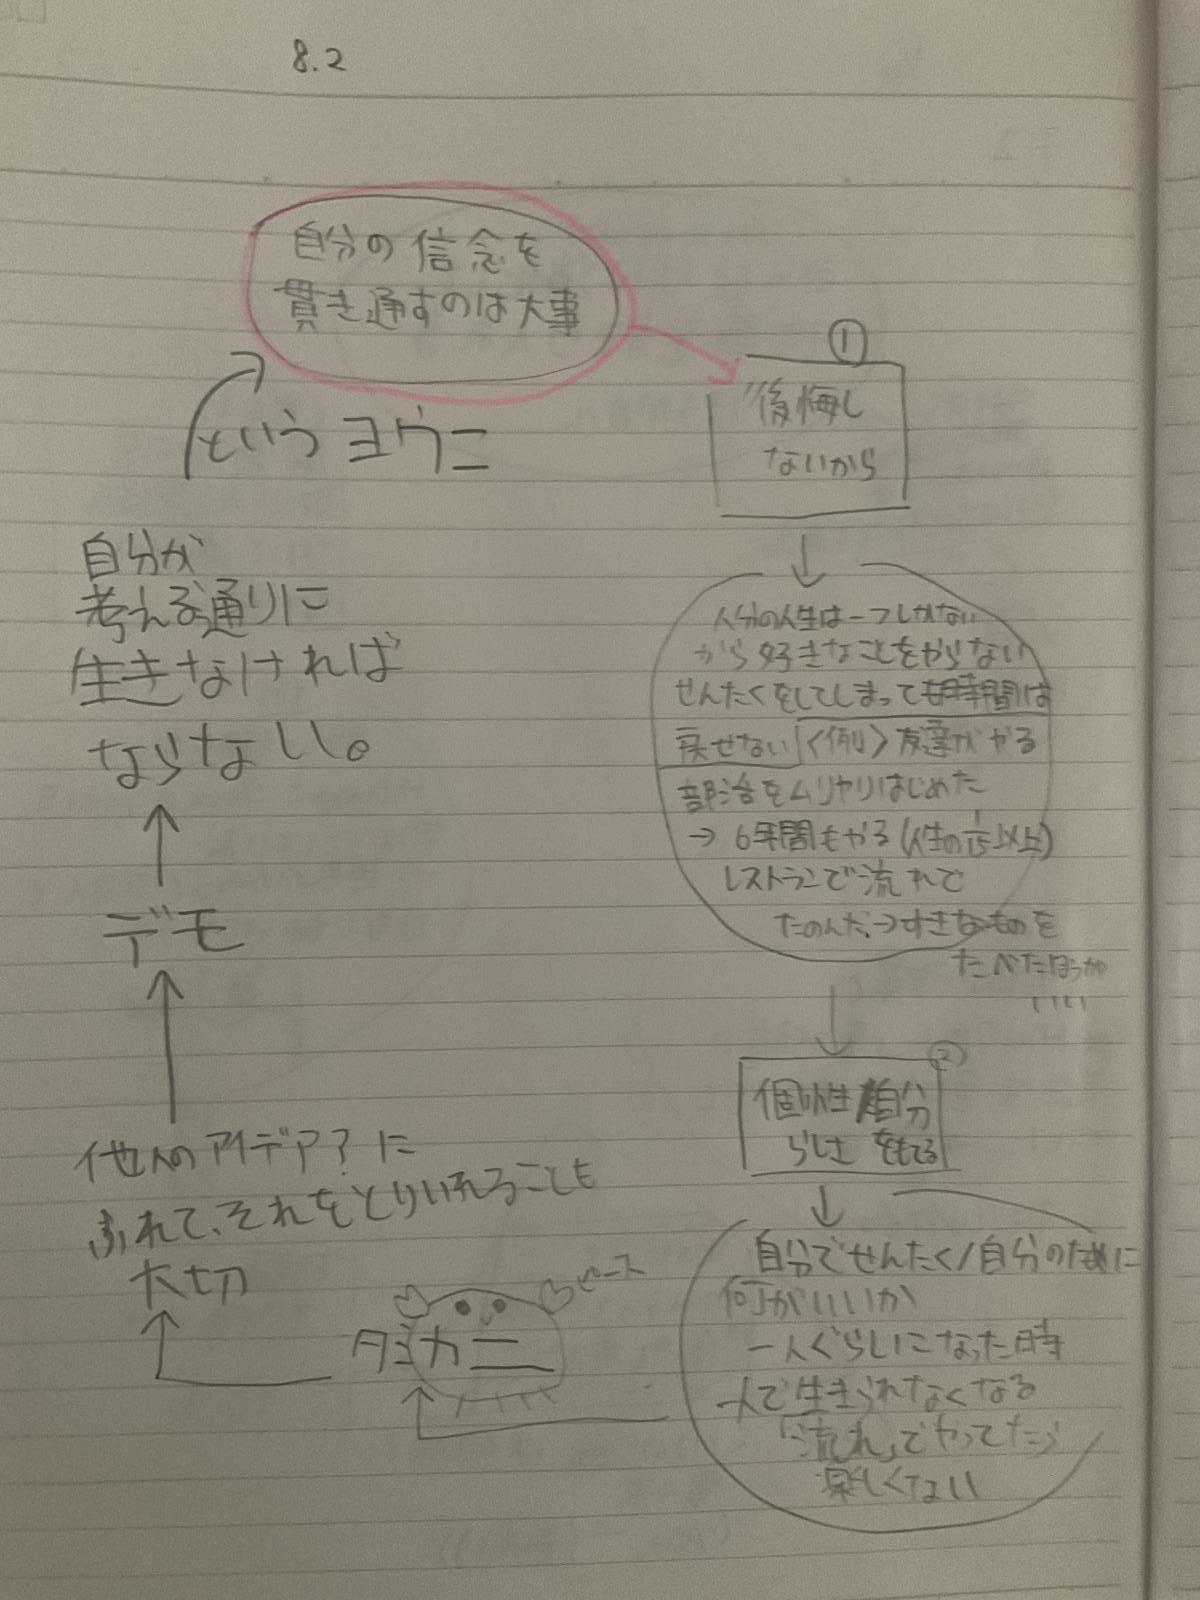 8.2
自分の信念を
貫き通すのは大事
①
後悔し
ないから
人分の人生は一つしかない
から好きなことをやらない
せんたくをしてしまっても時間は
戻せない〈例〉友達がやる
部活をムリヤリはじめた
→6年間もやる(人生の 以上)
レストランで流れで
たのんだ→すきなものを
たべたほうが
いい
②
個性/自分
らしさをもてる
自分でせんたく/自分のために
何がいいか
一人ぐらしになった時
一人で生きられなくなる
「流れ」でやってたら
楽しくない
タシカニ
ピース
他人のアイデア?に
ふれて、それをとりいれることも
大切
デモ
自分が
考える通りに
生きなければ
ならない。
というヨウニ